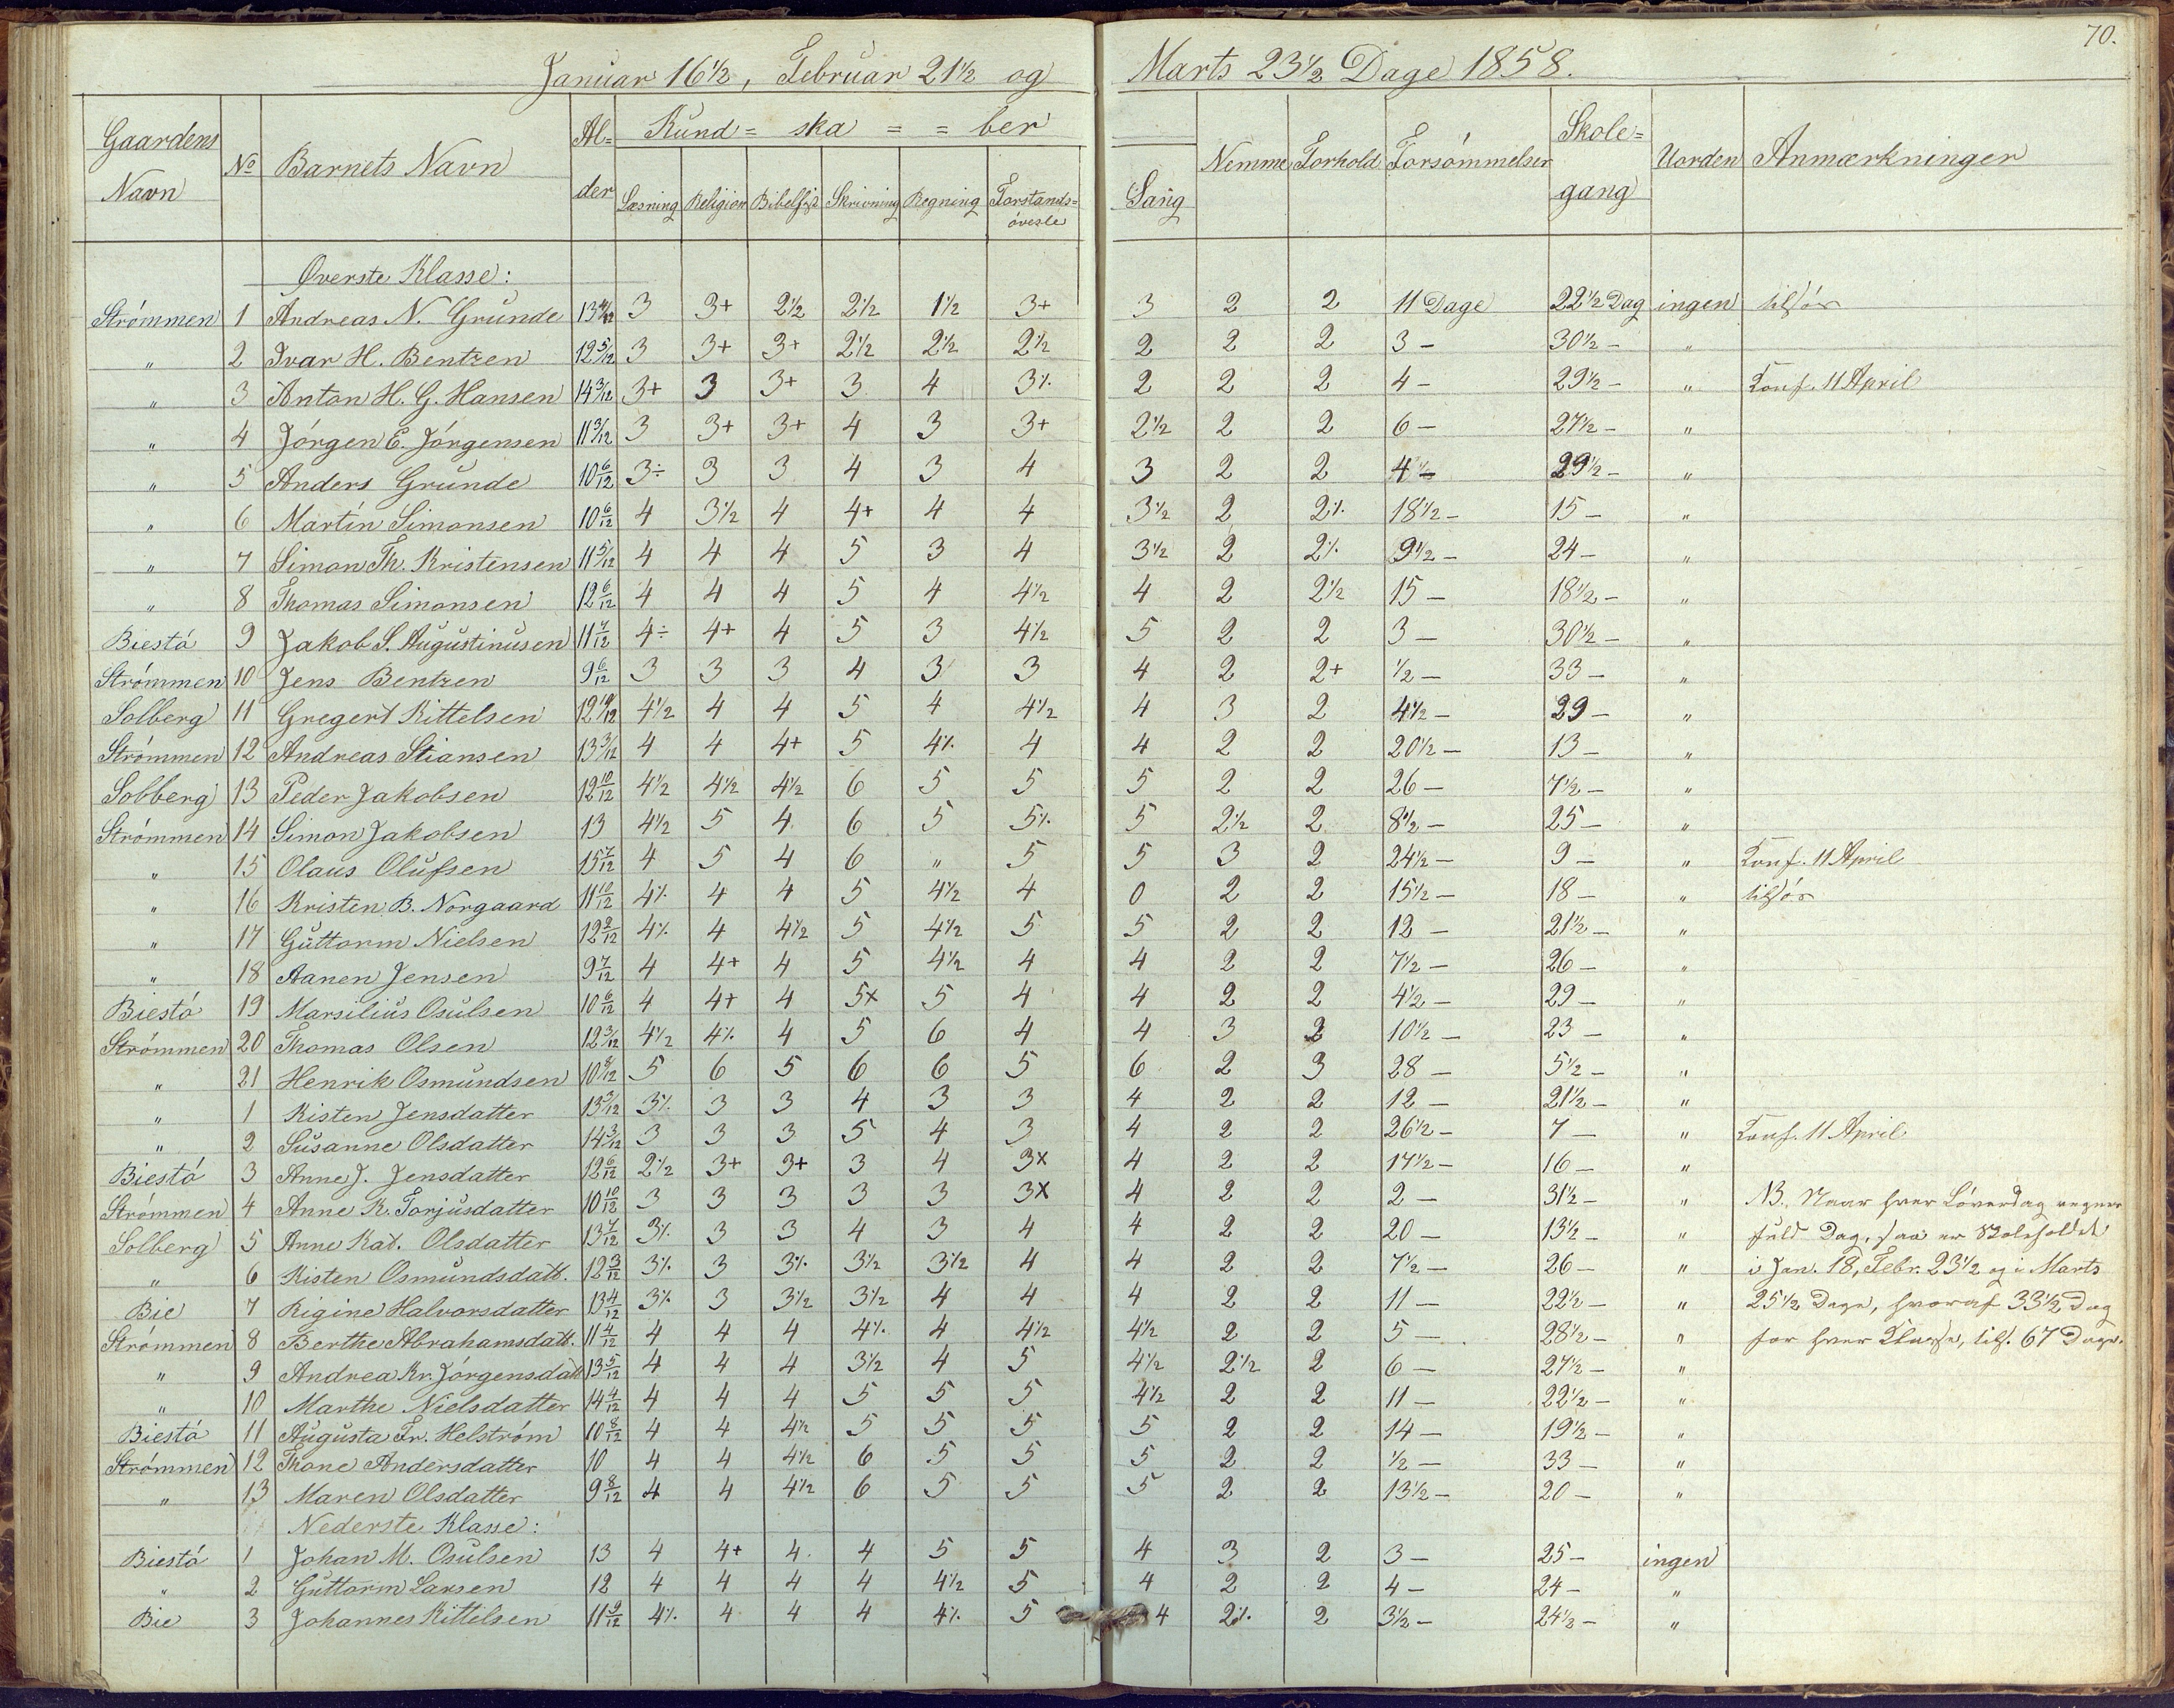 70.
Januar 16½, Februar 21½ og Marts 23½ Dage 1858.
Gaardens Navn | No | Barnets Navn | Al=der | Kund=ska==ber | Sang | Nemme | Forhold | Forsømmelser | Skole=gang | Uorden | Anmærkninger
Læsning | Religion | Bibelhist | Skrivning | Regning | Forstands=øvesle
Øverste Klasse:
Strømmen 1 Andreas N. Grunde 13 4/12 3 3+ 2½ 2½ 1½ 3+ 3 2 2 11 Dage 22½ Dag ingen
" 2 Ivar H. Bentzen 12 5/12 3 3+ 3+ 2½ 2½ 2½ 2 2 2 3 – 30½ – "
" 3 Anton H. G. Hansen 14 3/12 3+ 3 3+ 3 4 3⁒ 2 2 2 4 – 29½ – " Konf. 11 April
" 4 Jørgen E. Jørgensen 11 3/12 3 3+ 3+ 4 3 3+ 2½ 2 2 6 – 27½ – "
" 5 Anders Grunde 10 6/12 3÷ 3 3 4 3 4 3 2 2 4 – 29½ – "
" 6 Martin Simonsen 10 6/12 4 3½ 4 4+ 4 4 3½ 2 2⁒ 18½ – 15 – "
" 7 Simon Th. Kristensen 11 5/12 4 4 4 5 3 4 3½ 2 2⁒ 9½ – 24 – "
" 8 Thomas Simonsen 12 6/12 4 4 4 5 4 4½ 4 2 2½ 15 – 18½ – "
Biestø 9 Jakob S. Augustinusen 11 7/12 4÷ 4+ 4 5 3 4½ 5 2 2 3 – 30½ – "
Strømmen 10 Jens Bentzen 9 6/12 3 3 3 4 3 3 4 2 2+ ½ – 33 – "
Solberg 11 Gregert Kittelsen 12 10/12 4½ 4 4 5 4 4½ 4 3 2 4½ – 29 – "
Strømmen 12 Andreas Stiansen 13 3/12 4 4 4+ 5 4⁒ 4 4 2 2 20½ – 13 – "
Solberg 13 Peder Jakobsen 12 10/12 4½ 4½ 4½ 6 5 5 5 2 2 26 – 7½ – "
Strømmen 14 Simon Jakobsen 13 4½ 5 4 6 5 5⁒ 5 2½ 2 8½ – 25 – "
" 15 Olaus Olufsen 15 7/12 4 5 4 6 " 5 5 3 2 24½ – 9 – " Konf. 11 April
" 16 Kristen B. Norgaard 11 10/12 4⁒ 4 4 5 4½ 4 0 2 2 15½ – 18 – "
" 17 Guttorm Nielsen 12 2/12 4⁒ 4 4½ 5 4½ 5 5 2 2 12 – 21½ – "
" 18 Aanen Jensen 9 7/12 4 4+ 4 5 4½ 4 4 2 2 7½ – 26 – "
Biestø 19 Marsilius Osulsen 10 6/12 4 4+ 4 5x 5 4 4 2 2 4½ – 29 – "
Strømmen 20 Thomas Olsen 12 3/12 4½ 4⁒ 4 5 6 4 4 3 2 10½ – 23 – "
" 21 Henrik Osmundsen 10 8/12 5 6 5 6 6 5 6 2 3 28 – 5½ – "
" 1 Kisten Jensdatter 13 3/12 3⁒ 3 3 4 3 3 4 2 2 12 – 21½ – "
" 2 Susanne Olsdatter 14 3/12 3 3 3 5 4 3 4 2 2 26½ – 7 – " Konf. 11 April
Biestø 3 Anne J. Jensdatter 12 6/12 2½ 3+ 3+ 3 4 3x 4 2 2 17½ – 16 – "
Strømmen 4 Anne K. Torjusdatter 10 10/12 3 3 3 3 3 3x 4 2 2 2 – 31½ – " NB. Naar hver Løverdag regnes
Solberg 5 Anne Kat. Olsdatter 13 7/12 3⁒ 3 3 4 3 4 4 2 2 20 – 13½ – " fuld Dag, saa er Skoleholdet
" 6 Kisten Osmundsdatt. 12 3/12 3⁒ 3 3⁒ 3½ 3½ 4 4 2 2 7½ – 26 – " i Jan. 18, Febr. 23½ og i Marts
Bie 7 Rigine Halvorsdatter 13 4/12 3⁒ 3 3½ 3½ 4 4 4 2 2 11 – 22½ – " 25½ Dage, hvoraf 33½ Dag
Strømmen 8 Berthe Abrahamsdatt. 11 4/12 4 4 4 4⁒ 4 4½ 4½ 2 2 5 – 28½ – " for hver Klasse, tils. 67 Dage.
" 9 Andrea Kr. Jørgensdatt 13 5/12 4 4 4 3½ 4 5 4½ 2½ 2 6 – 27½ – "
" 10 Marthe Nielsdatter 14 4/12 4 4 4 5 5 5 4½ 2 2 11 – 22½ – "
Biestø 11 Augusta Fr. Helstrøm 10 8/12 4 4 4½ 5 5 5 5 2 2 14 – 19½ – "
Strømmen 12 Thone Andersdatter 10 4 4 4½ 6 5 5 5 2 2 ½ – 33 – "
" 13 Maren Olsdatter 9 8/12 4 4 4½ 6 5 5 5 2 2 13½ – 20 – "
Nederste Klasse:
Biestø 1 Johan M. Osulsen 13 4 4+ 4 4 5 5 4 3 2 3 – 25 – ingen
" 2 Guttorm Larsen 12 4 4 4 4 4½ 5 4 2 2 4 – 24 – "
Bie 3 Johannes Kittelsen 11 9/12 4⁒ 4 4 4 4⁒ 5 4 2⁒ 2 3½ – 24½ – "